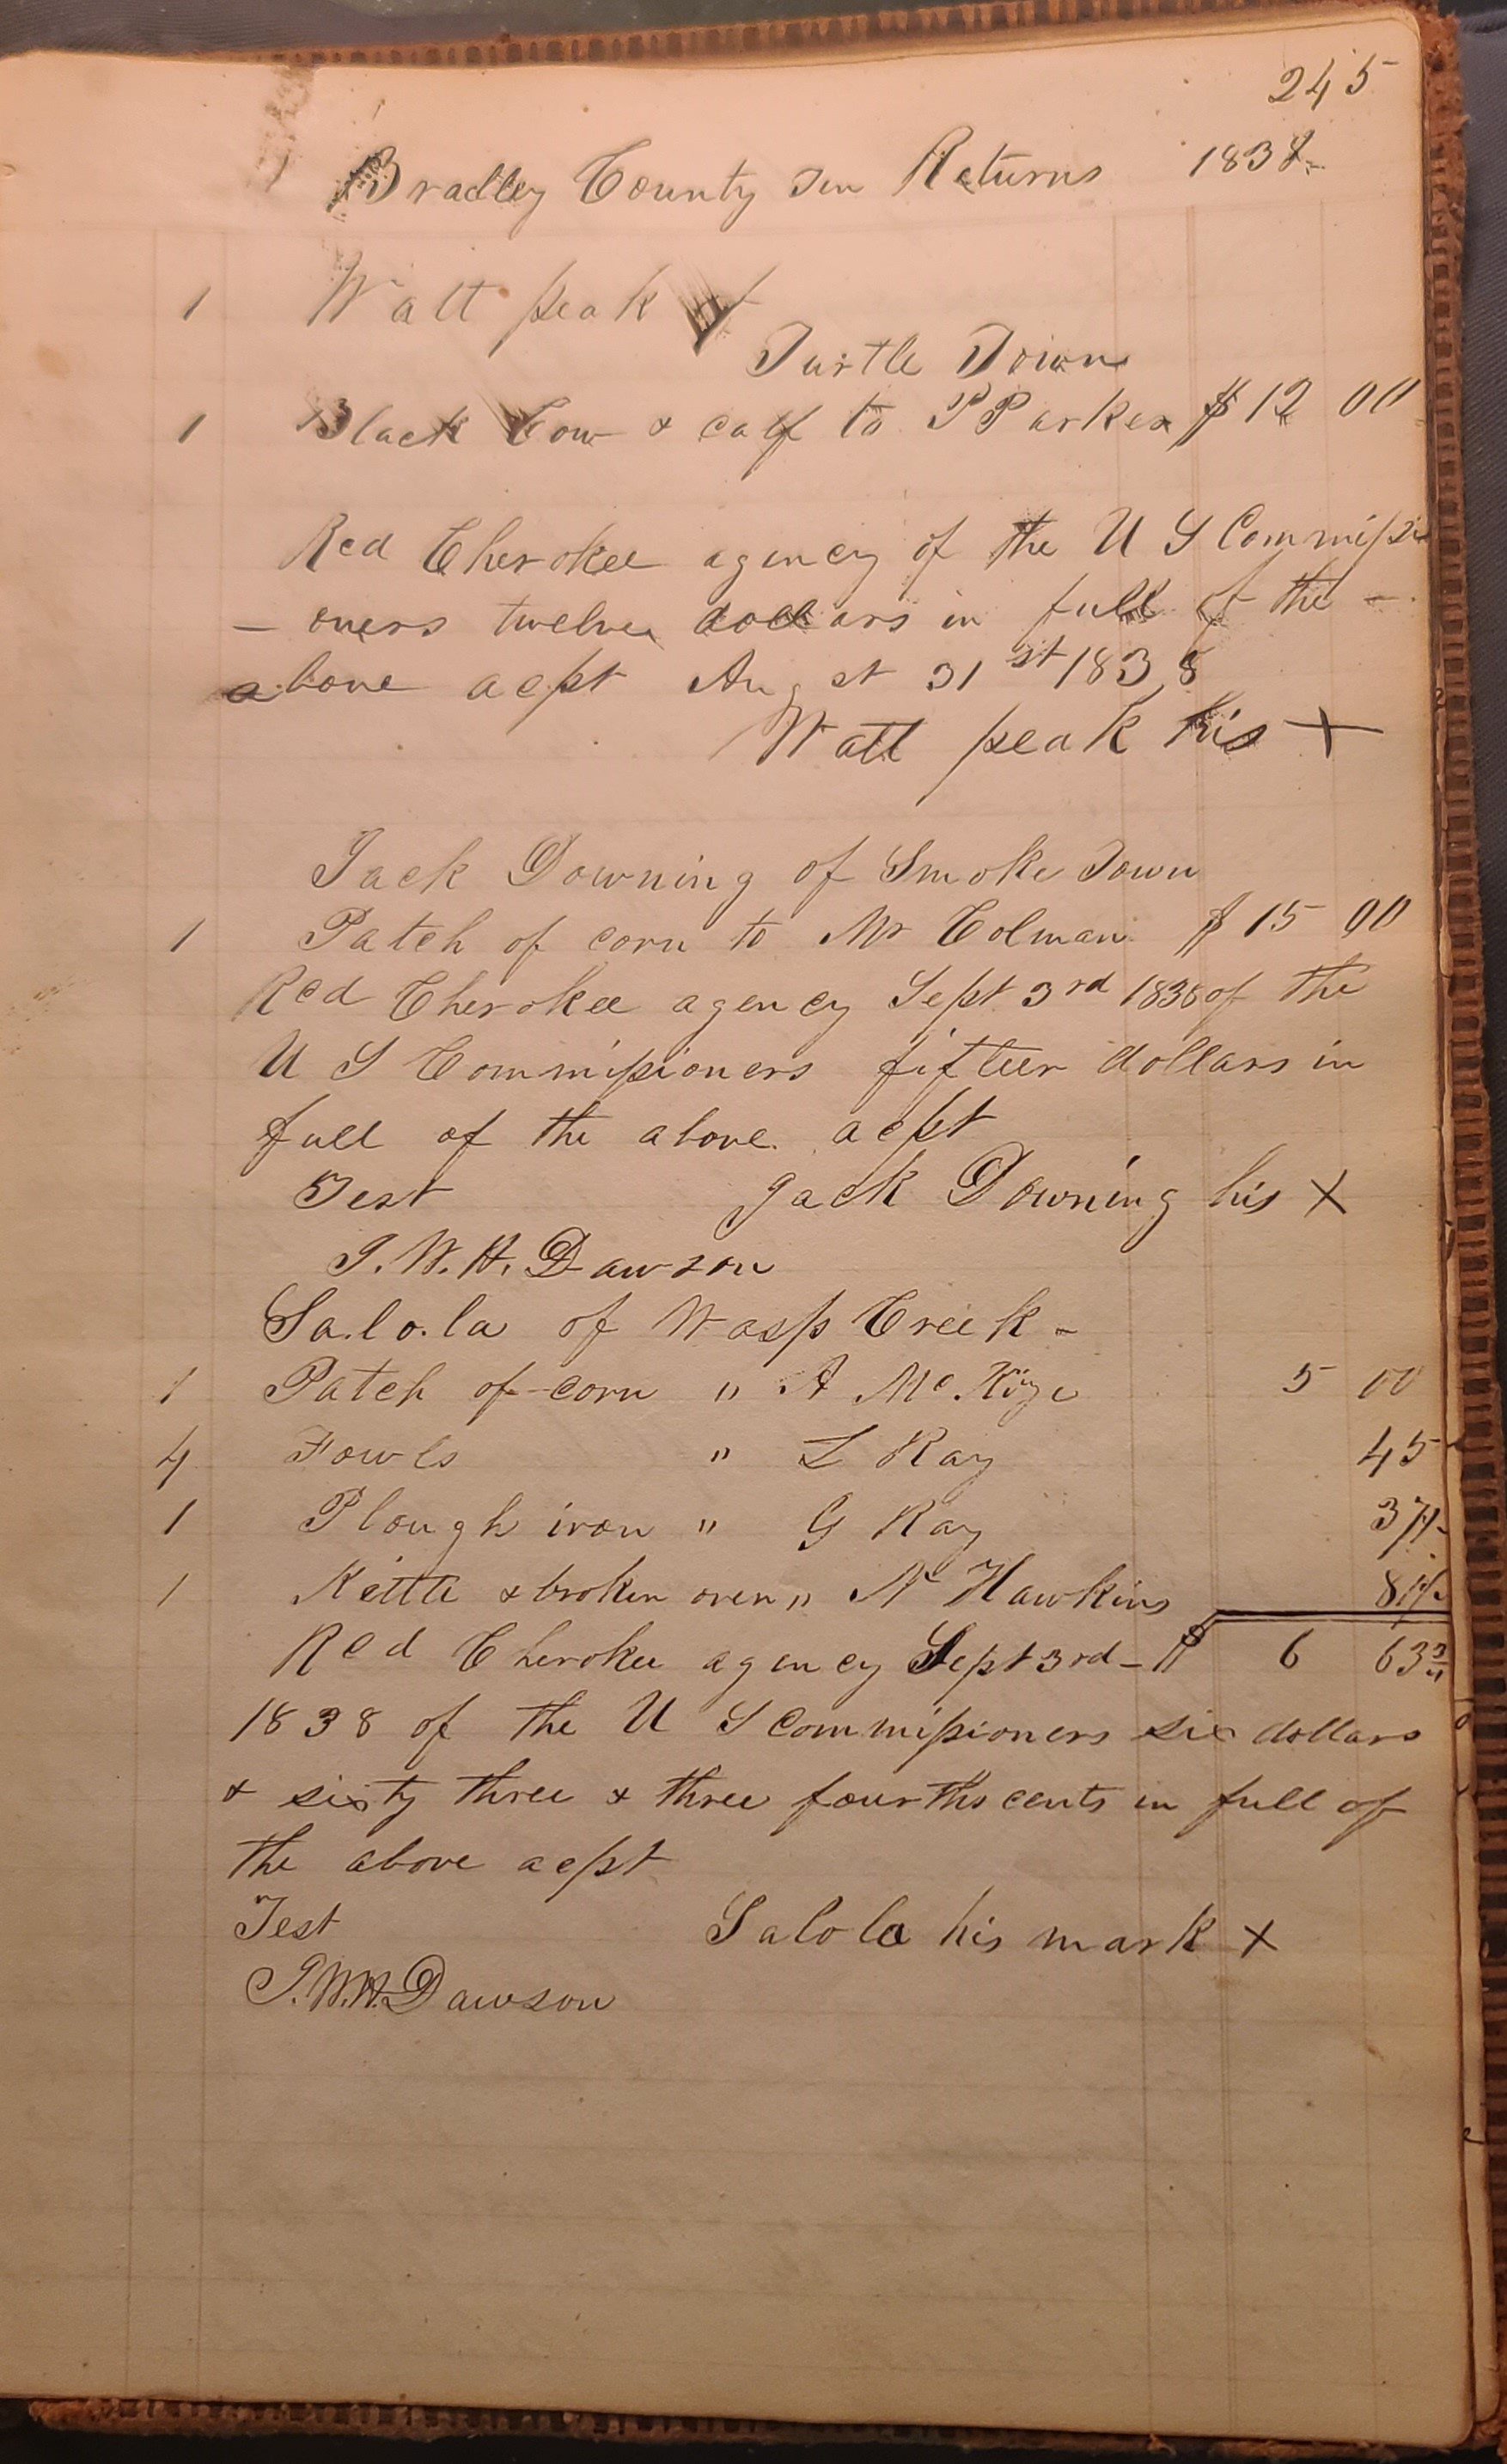 245
Bradley County Ten Returns 1838-
1 Watt peak of
Turtle Town
1 Black Cow & calf to P Parker $ 12 00
Recd Cherokee agency of the U S Commissi
- oners twelve dollars in full of the -
above acpt Augst 31st 1838
Watt peak his X
Jack Downing of Smoke Town
1 Patch of corn to Mr Colman $ 15 00
Recd Cherokee agency Sept 3rd 1838 of the
U S Commissioners fifteen dollars in
full of the above acpt
Test Jack Downing his X
J. W. H. Dawson
Sa.lo.la of Wasp Creek -
1 Patch of corn " A 5 00
4 Fowls " L Ray 45
1 Plough iron " G Ray
1 Kettle & broken oven " N Hawkins
Recd Cherokee agency Sept 3rd - $ 6 63 3/4
1838 of the U S Commissioners six dollars
& sixty three & three fourths cents in full of
the above acpt
Test Salola his mark X
J. W. H. Dawson